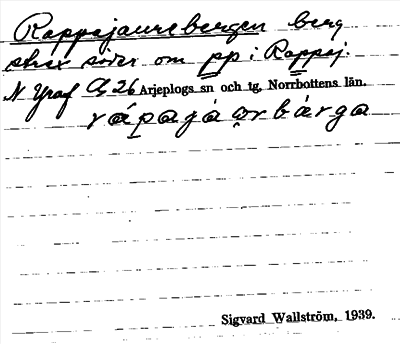 Rappajaurebergen berg
strax söder om pp i Rappaj.
N Ygraf Cb 26 Arjeplogs sn och tg, Norrbottens län.
rápagá o̜r bárga
Sigvard Wallström, 1939.